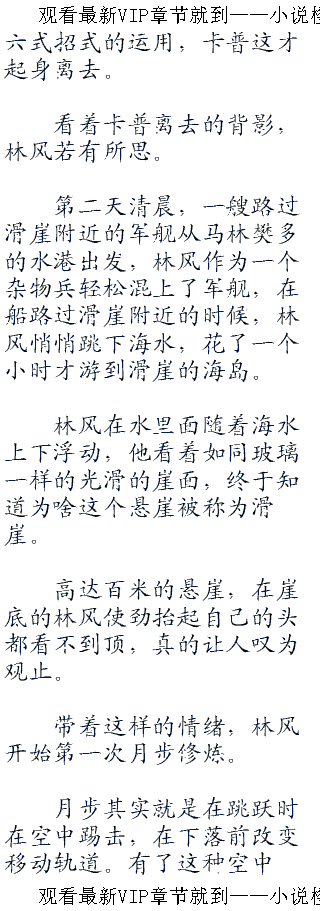 观看最新VIP章节就到——小说
六式招式的运用，卡普这才
起身离去。
看着卡普离去的背影，
林风若有所思。
第二天清晨，一艘路过
滑崖附近的军舰从马林樊多
的水港出发，林风作为一个
杂物兵轻松混上了军舰，在
船路过滑崖附近的时候，林
风悄悄跳下海水，花了一个
小时才游到滑崖的海岛。
林风在水里面随着海水
上下浮动，他看着如同玻璃
一样的光滑的崖面，终于知
道为啥这个悬崖被称为滑
崖。
高达百米的悬崖，在崖
底的林风使劲抬起自己的头
都看不到顶，真的让人叹为
观止。
带着这样的情绪，林风
开始第一次月步修炼。
月步其实就是在跳跃时
在空中踢击，在下落前改变
移动轨道。有了这种空中
观看最新VIP章节就到——小说